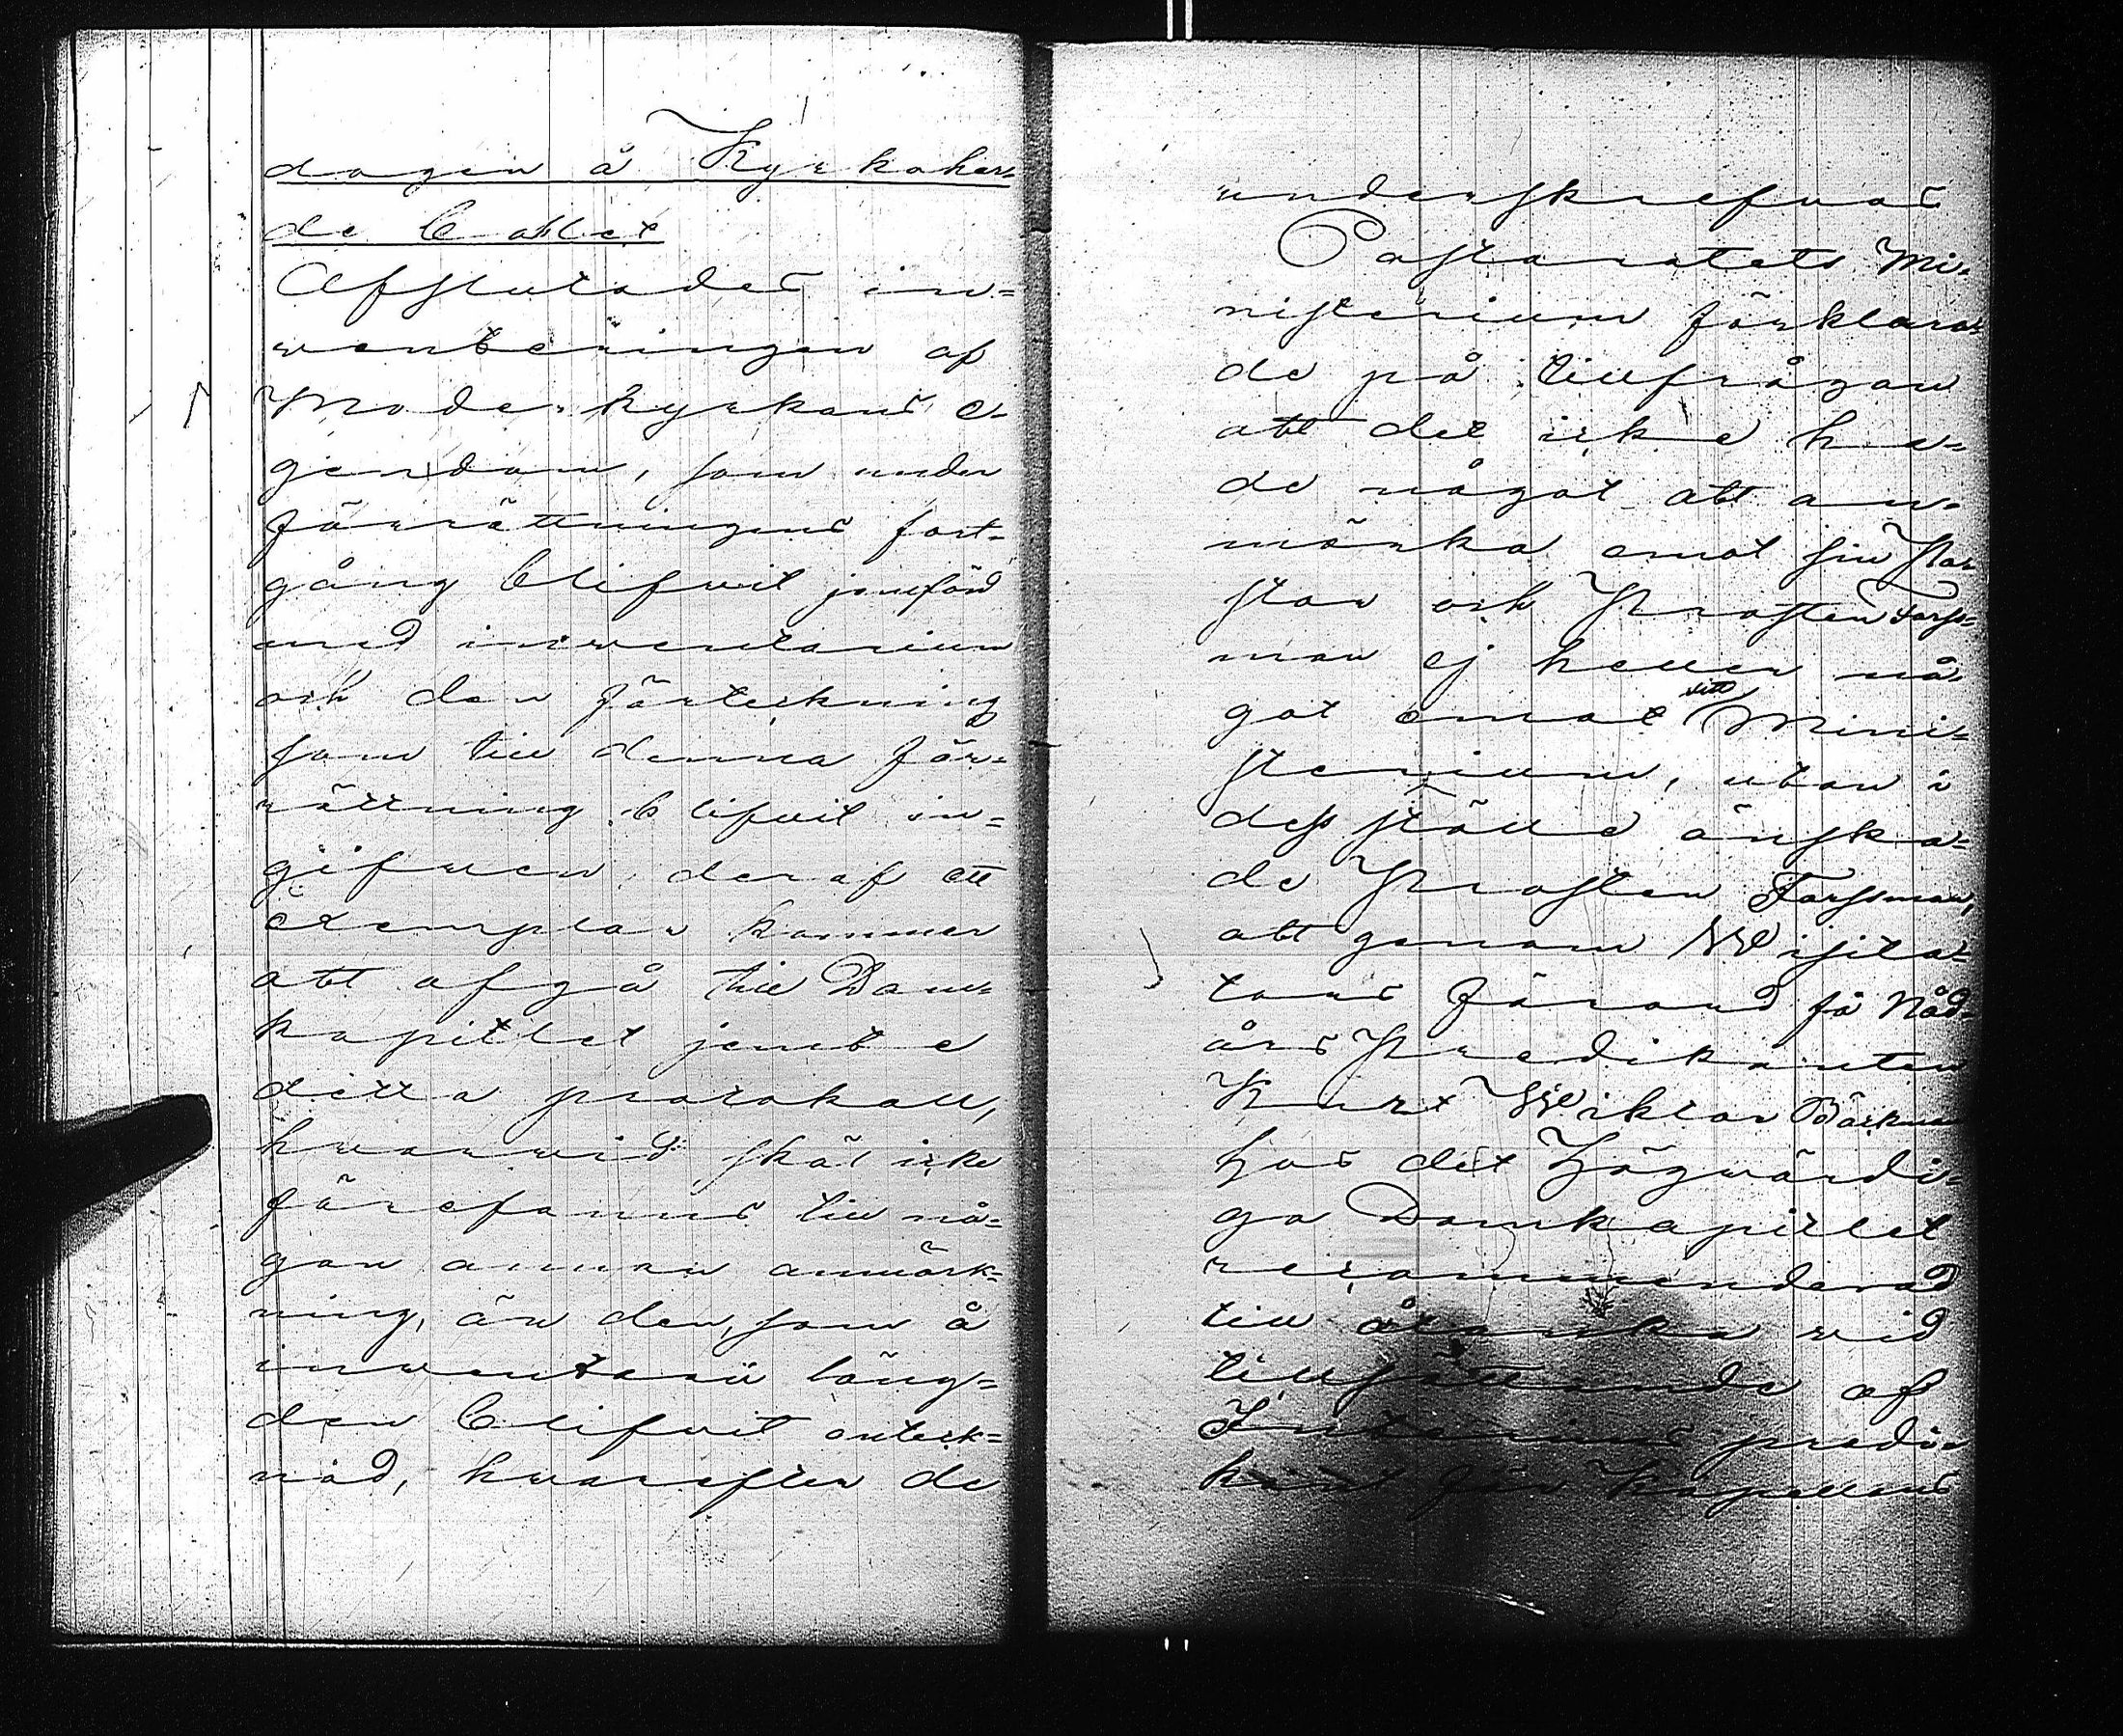 dagen å Kyrkoher=
de Bohlet
Afslutades in=
venteringen af
Moderkyrkans e-
gendom, som under
förrättningens fort=
gång blifvit jemförd
med inventarium
och den förteckning
som till denna för=
rättning blifvit in=
gifven, deraf ett
exemplar kommer
att afgå till Dom=
kapitlet jemte
detta protokoll,
hvarvid skäl icke
förefanns till nå=
gon annan anmärk=
ning, än den, som å
inventarii läng=
den blifvit anteck=
nad, hvarefter de
underskrefvos
Pastoratets Mi=
nisterium förklara=
de på tillfrågan
att det icke ha=
de något att an=
märka emot sin Pa=
stor och Prosten Forss=
man ej heller nå
got emot sitt Mini=
sterium, utan i
dess ställe önska=
de Prosten Forssman,
att genom Visita=
tors försord få Nåd=
års Predikanten
Kurt Wiktor Bäckman
hos det Högvördi=
ga Domkapitlet
recommenderad
till åtanka vid
tillsättande af
Interims predi=
kant för Kapellans